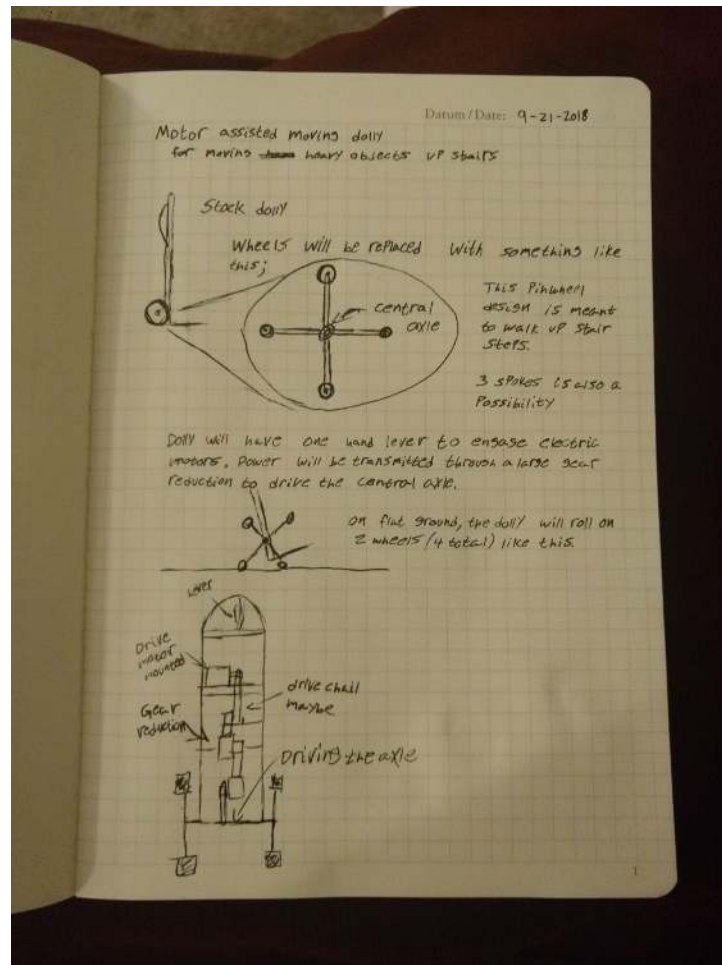 Datum / Date: 9-21-2018
Motor assisted moving dolly
for moving heavy objects up stairs
Stock dolly
Wheels will be replaced with something like
this;
central
axle
This Pinwheel
design is meant
to walk up stair
steps.
3 spokes is also a
Possibility
Dolly will have one hand lever to engage electric
motors. Power will be transmitted through a large gear
reduction to drive the central axle.
on flat ground, the dolly will roll on
2 wheels (4 total) like this.
Lever
Drive
motor
mounted
drive chail
maybe
Gear
reduction
Driving the axle
1